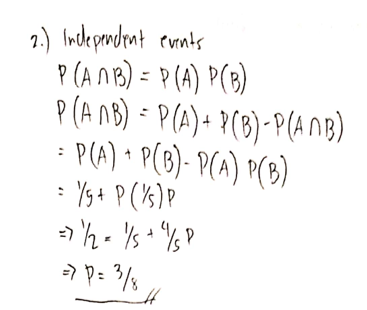 2.) Independent events
P(A∩B) = P(A) P(B)
P(A∩B) = P(A) + P(B) - P(A∩B)
= P(A) + P(B) - P(A) P(B)
= 1/5 + P (1/5) P
=> 1/2 = 1/5 + 4/5 P
=> P = 3/8